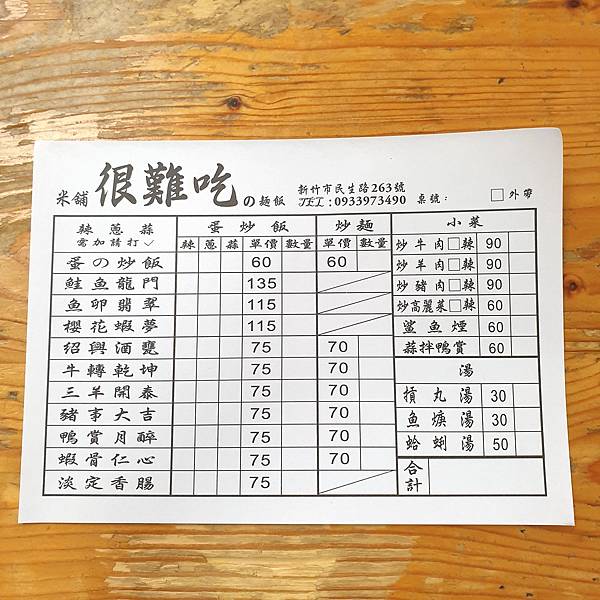 米舖 很難吃 の麵飯 新竹市民生路263號
TEL:0933973490 桌號: □外帶
辣蔥蒜 蛋炒飯 炒麵 小菜
需加請打✓ 辣 蔥 蒜 單價 數量 單價 數量 炒牛肉□辣 90
蛋の炒飯 60 60 炒羊肉□辣 90
鮭魚龍門 135 炒豬肉□辣 90
魚卵翡翠 115 炒高麗菜□辣 60
櫻花蝦夢 115 鯊魚煙 60
紹興酒甕 75 70 蒜拌鴨賞 60
牛轉乾坤 75 70 湯
三羊開泰 75 70 摃丸湯 30
豬事大吉 75 70 魚焿湯 30
鴨賞月醉 75 70 蛤蜊湯 50
蝦骨仁心 75 70 合計
淡定香腸 75